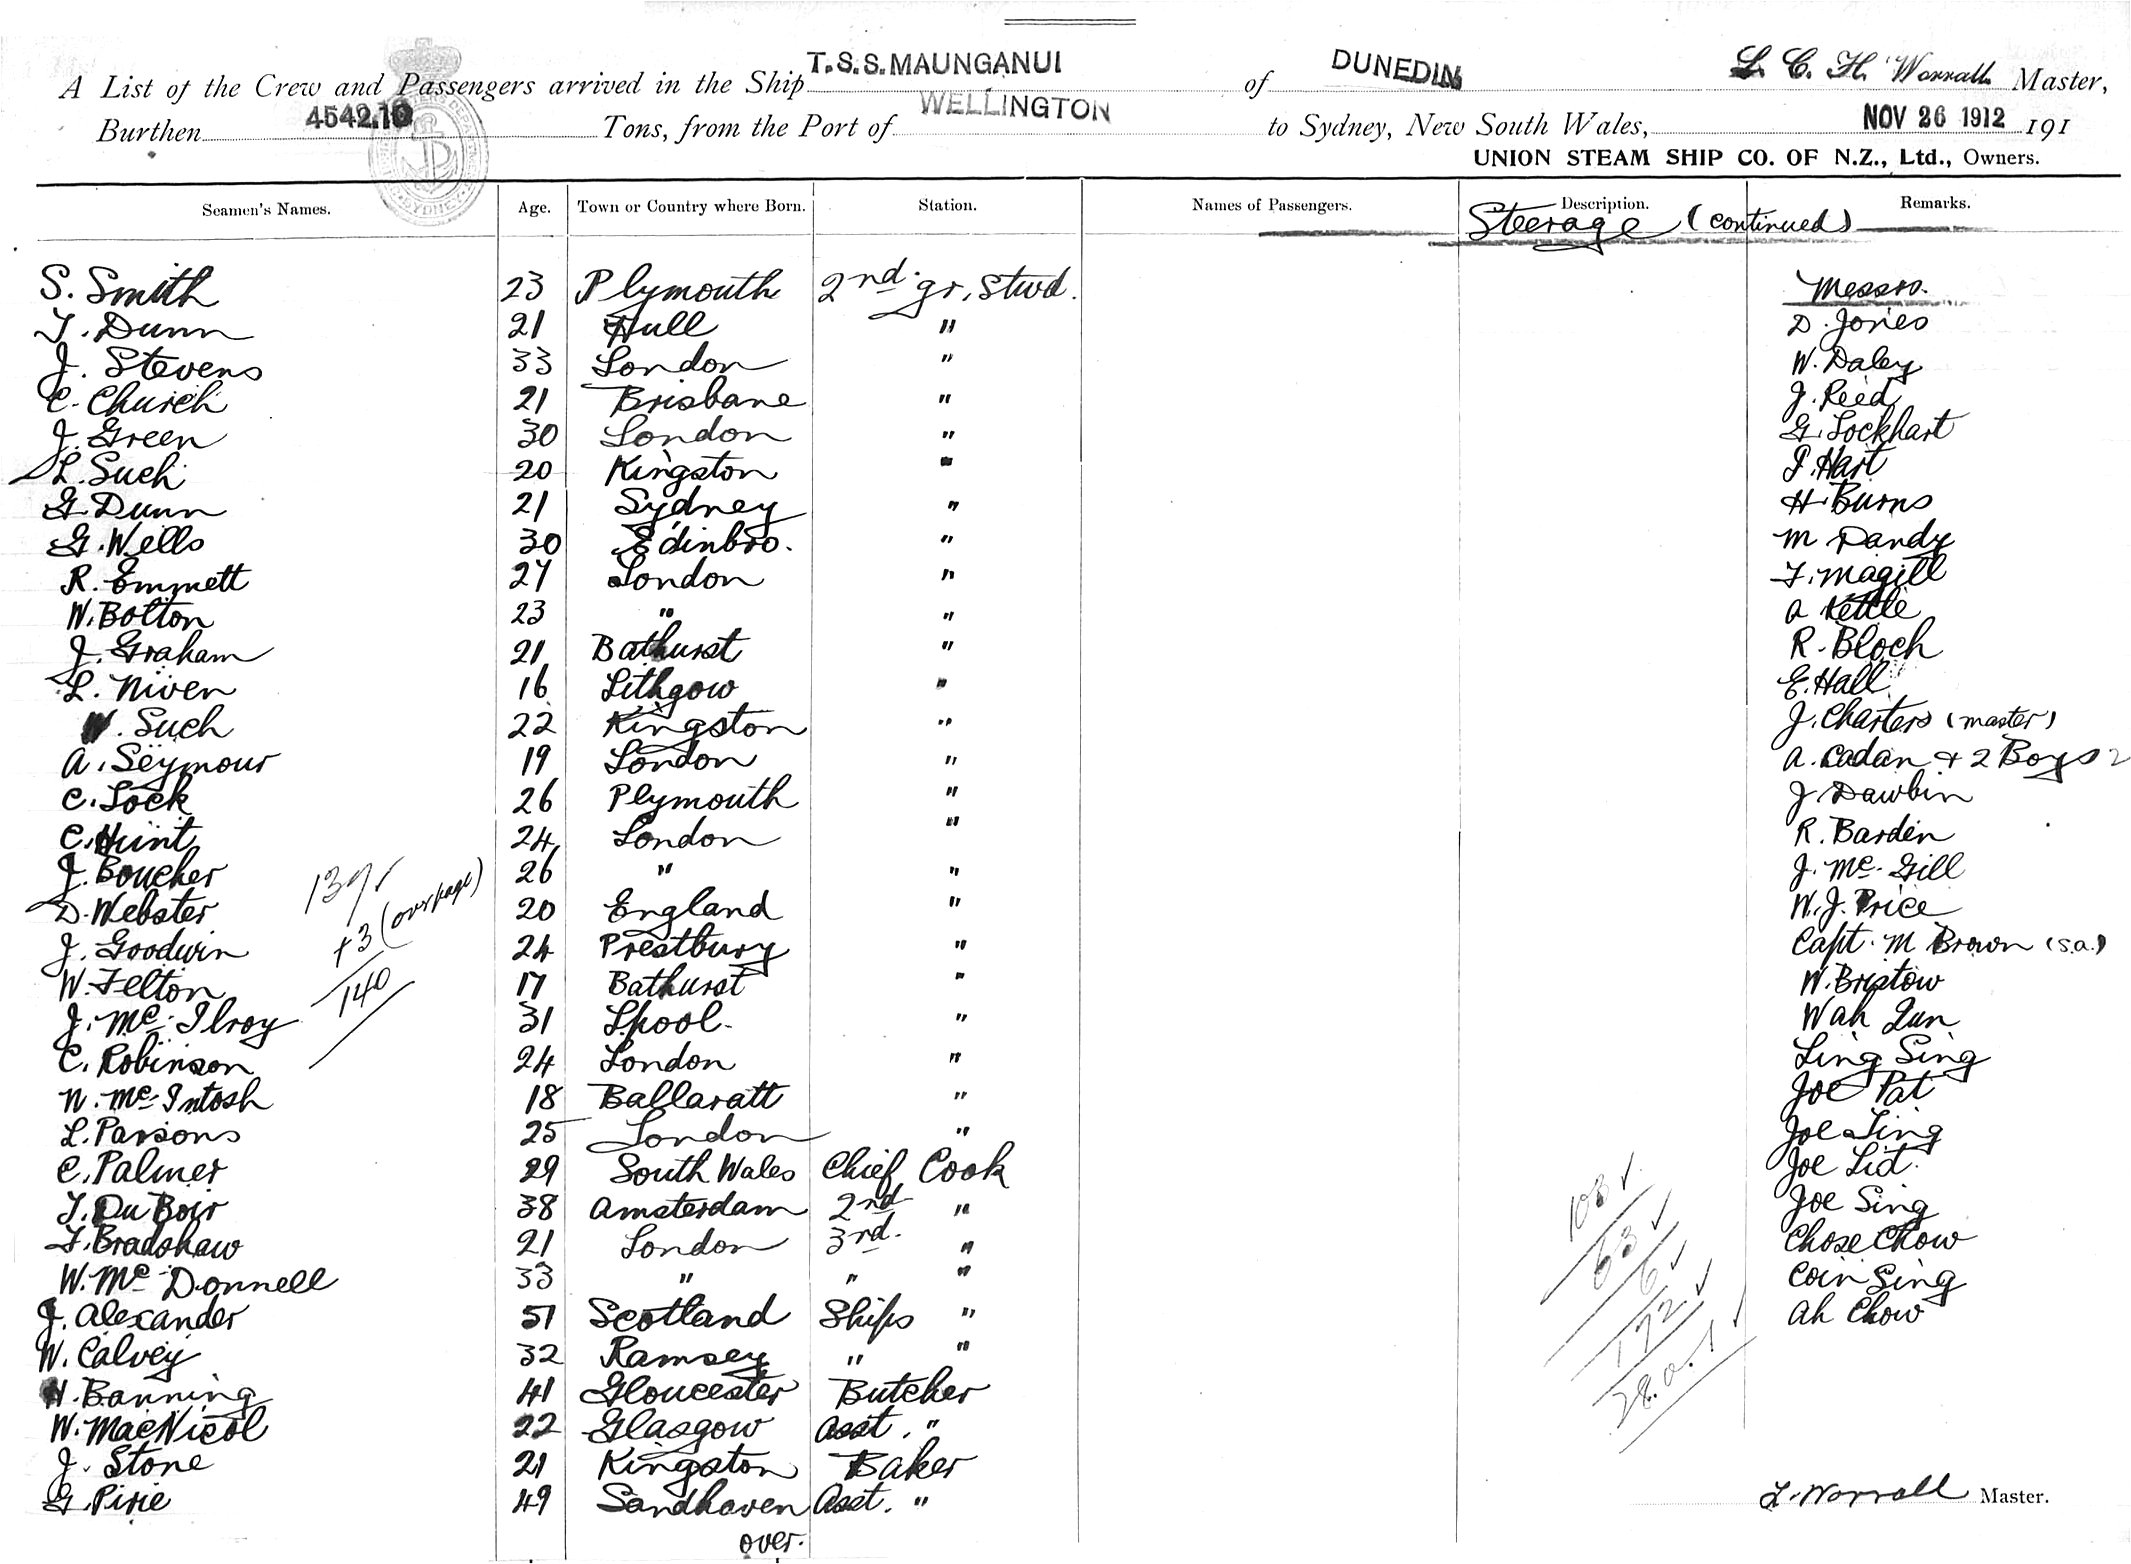 A List of the Crew and Passengers arrived in the Ship T.S.S. MAUNGANUI of DUNEDIN L. C. H. Worrall Master,
Burthen 4542.10 Tons, from the Port of WELLINGTON to Sydney, New South Wales, NOV 26 1912 191
UNION STEAM SHIP CO. OF N.Z., Ltd., Owners.
Seamen's Names. Age. Town or Country where Born. Station. Names of Passengers. Description. Remarks.
Steerage (continued)
S. Smith 23 Plymouth 2nd gr. Stwd. Messrs.
T. Dunn 21 Hull " D. Jones
J. Stevens 33 London " W. Daley
C. Church 21 Brisbane " J. Reed
J. Green 30 London " G. Lockhart
L. Such 20 Kingston " P. Hart
G. Dunn 21 Sydney " H. Burns
G. Wells 30 Edinbro. " M Dandy
R. Emmett 27 London " T. Magill
W. Bolton 23 " " A Kettle
J. Graham 21 Bathurst " R. Bloch
L. Niven 16 Lithgow " E. Hall
W. Such 22 Kingston " J. Charters (master)
A. Seymour 19 London " A. Cadan + 2 Boys 2
C. Lock 26 Plymouth " J Dawbin
C. Hunt 24 London " R. Barden
J. Boucher 26 " " J. Mc. Gill
D. Webster 20 England " W. J. Price
J. Goodwin 24 Prestbury " Capt. M Brown (S.a.)
W. Felton 17 Bathurst " W. Bristow
J. Mc. Ilroy 31 L'pool. " Wah Lun
C. Robinson 24 London " Ling Sing
N. Mc. Intosh 18 Ballaratt " Joe Pat
L. Parsons 25 London " Joe Ling
C. Palmer 29 South Wales Chief Cook Joe Lid.
T. Du Boir 38 Amsterdam 2nd " Joe Sing
T. Bradshaw 21 London 3rd. " Chose Chow
W. Mc Donnell 33 " " " Coin Sing
J. Alexander 51 Scotland Ships " Ah Chow
W. Calvey 32 Ramsey " "
H. Banning 41 Gloucester Butcher
W. MacNicol 22 Glasgow Asst. "
J. Stone 21 Kingston Baker
G. Pirie 49 Sandhaven Asst. "
over.
137
+3 (overpage)
140
103
63
6
172
L. Worrall Master.